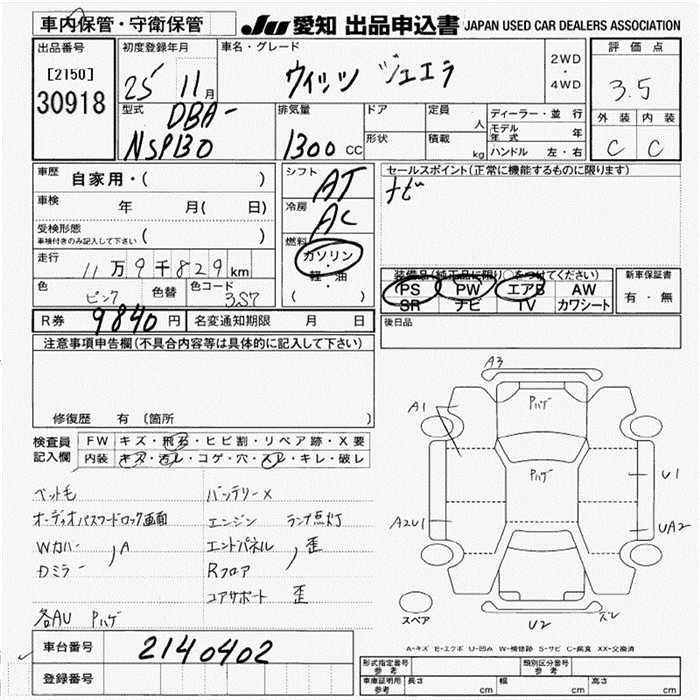 車内保管・守衛保管
JU 愛知 出品申込書 JAPAN USED CAR DEALERS ASSOCIATION
出品番号
[2150]
30918
初度登録年月
25 11月
車名・グレード
ヴィッツ ジュエラ
2WD
・
4WD
評価点
3.5
外装 内装
C C
型式
DBA-
NSP130
排気量
1300 CC
ドア
形状
定員
人
積載
kg
ディーラー・並行
モデル年式 年
ハンドル 左・右
車歴
自家用・( )
車検
年 月( 日)
受検形態
車検付きのみ記入して下さい ( )
走行
11万9千829km
色
ピンク
色替
色コード
3S7
シフト
AT
冷房
AC
燃料
ガソリン
・
軽・油
( )
セールスポイント(正常に機能するものに限ります)
ナビ
装備品(純正品に限り○をつけてください)
PS PW エアB AW
SR ナビ TV カワシート
新車保証書
有・無
後日品
R券 9840円
名変通知期限 月 日
注意事項申告欄(不具合内容等は具体的に記入して下さい)
修復歴 有 〔箇所 〕
検査員
記入欄
FW キズ・飛石・ヒビ割・リペア跡・X要
内装 キズ・汚レ・コゲ・穴・スレ・キレ・破レ
ペット毛
バッテリーX
オーディオパスワードロック画面
エンジン ランプ点灯
Wカバー
Dミラー , A
エンドパネル
Rフロア , 歪
コアサポート 歪
各AU Pハゲ
A3
A1
Pハゲ
Pハゲ
U1
A2U1
UA2
スペア
U2
ズレ
A-キズ E-エクボ U-凹み W-補修跡 S-サビ C-腐食 XX-交換済
車台番号
2140402
登録番号
型式指定番号
参考
類別区分番号
参考
車庫証明用
参考
長さ cm
幅 cm
高さ cm